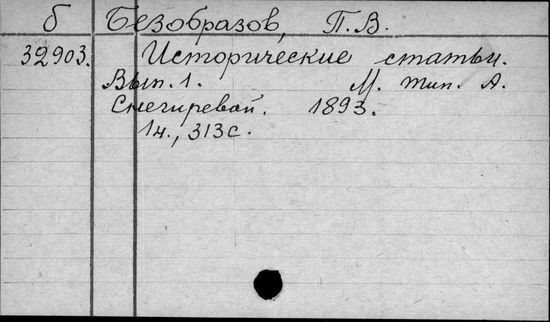 б Безобразов, П.В.
32903. Исторические статьи.
Вып. 1. М. тип. А.
Снегиревой. 1893.
1н., 313с.